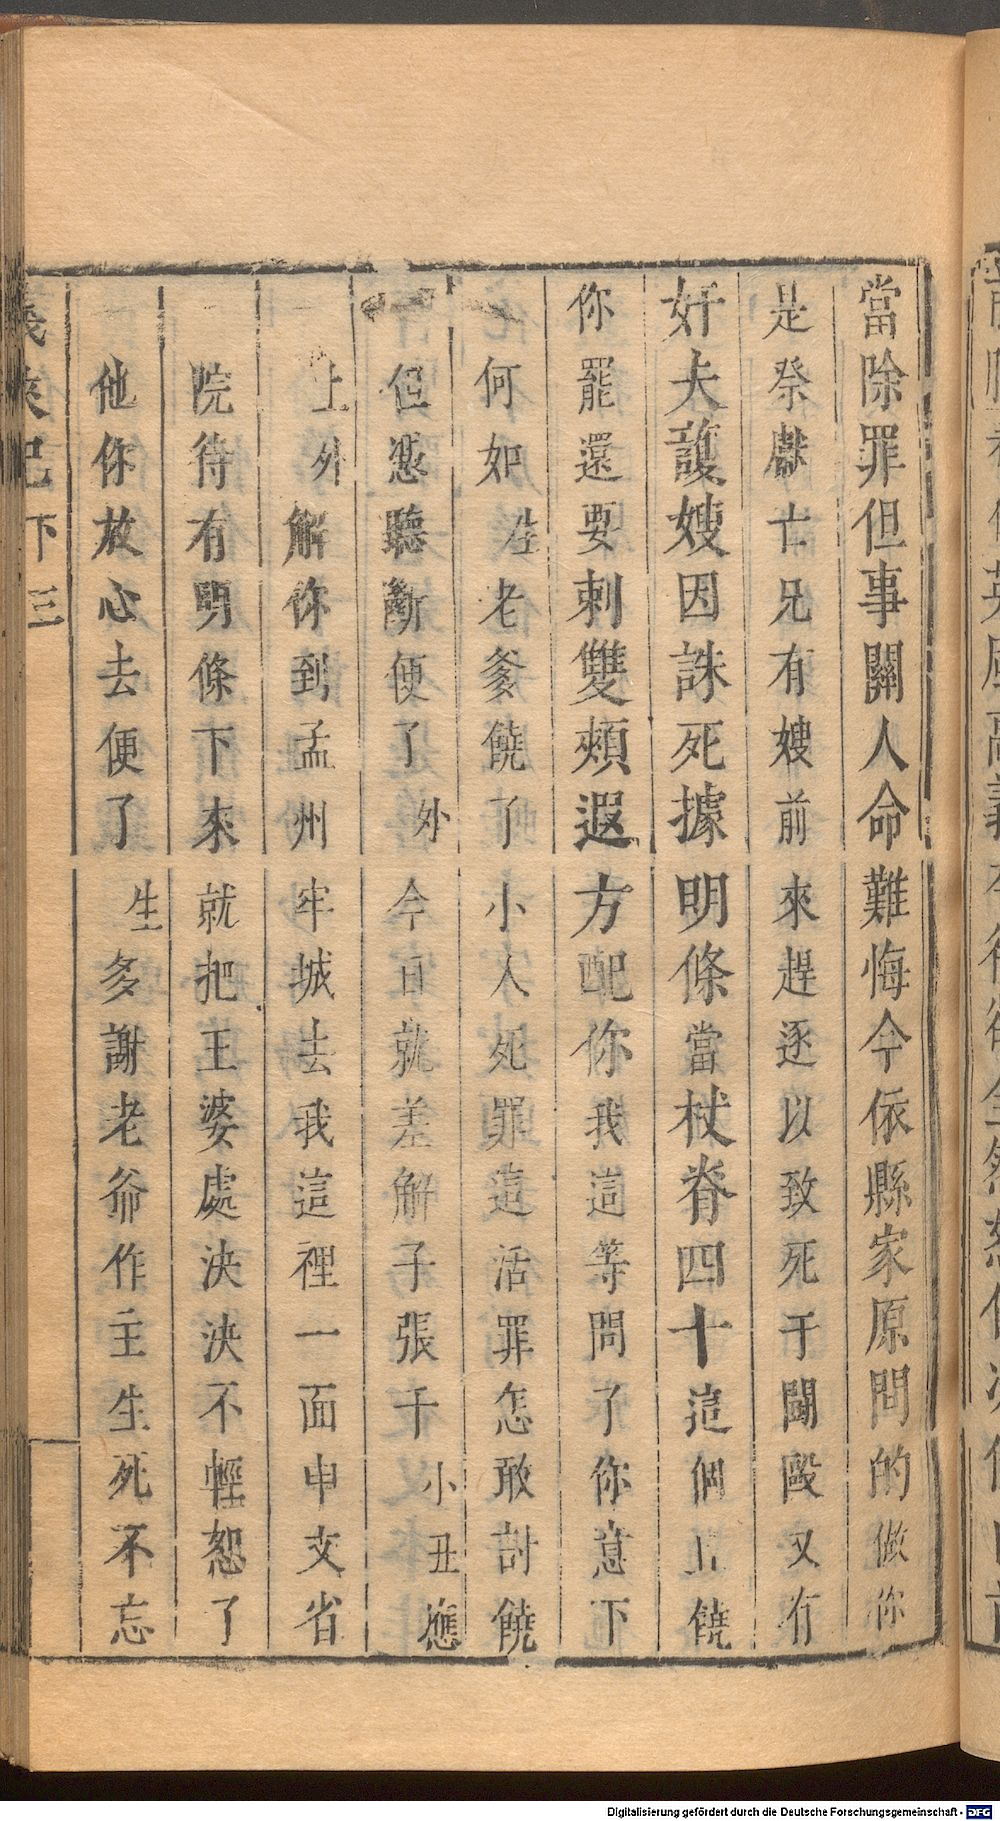 當除罪但事關人命難悔今依縣家原問的做你
是祭獻亡兄有嫂前來趕逐以致死于鬪毆又有
奸夫護嫂因誅死據明條當杖脊四十這個且饒
你罷還要刺雙頰遐方配你我這等問了你意下
何如生老爹饒了小人死罪這活罪怎敢討饒
但憑聽斷便了外今日就差解子張千小丑應
上外解你到孟州牢城去我這裡一面申文省
院待有明條下來就把王婆處決決不輕恕了
他你放心去便了生多謝老爺作主生死不忘
義俠記下三
Digitalisierung gefördert durch die Deutsche Forschungsgemeinschaft - DFG